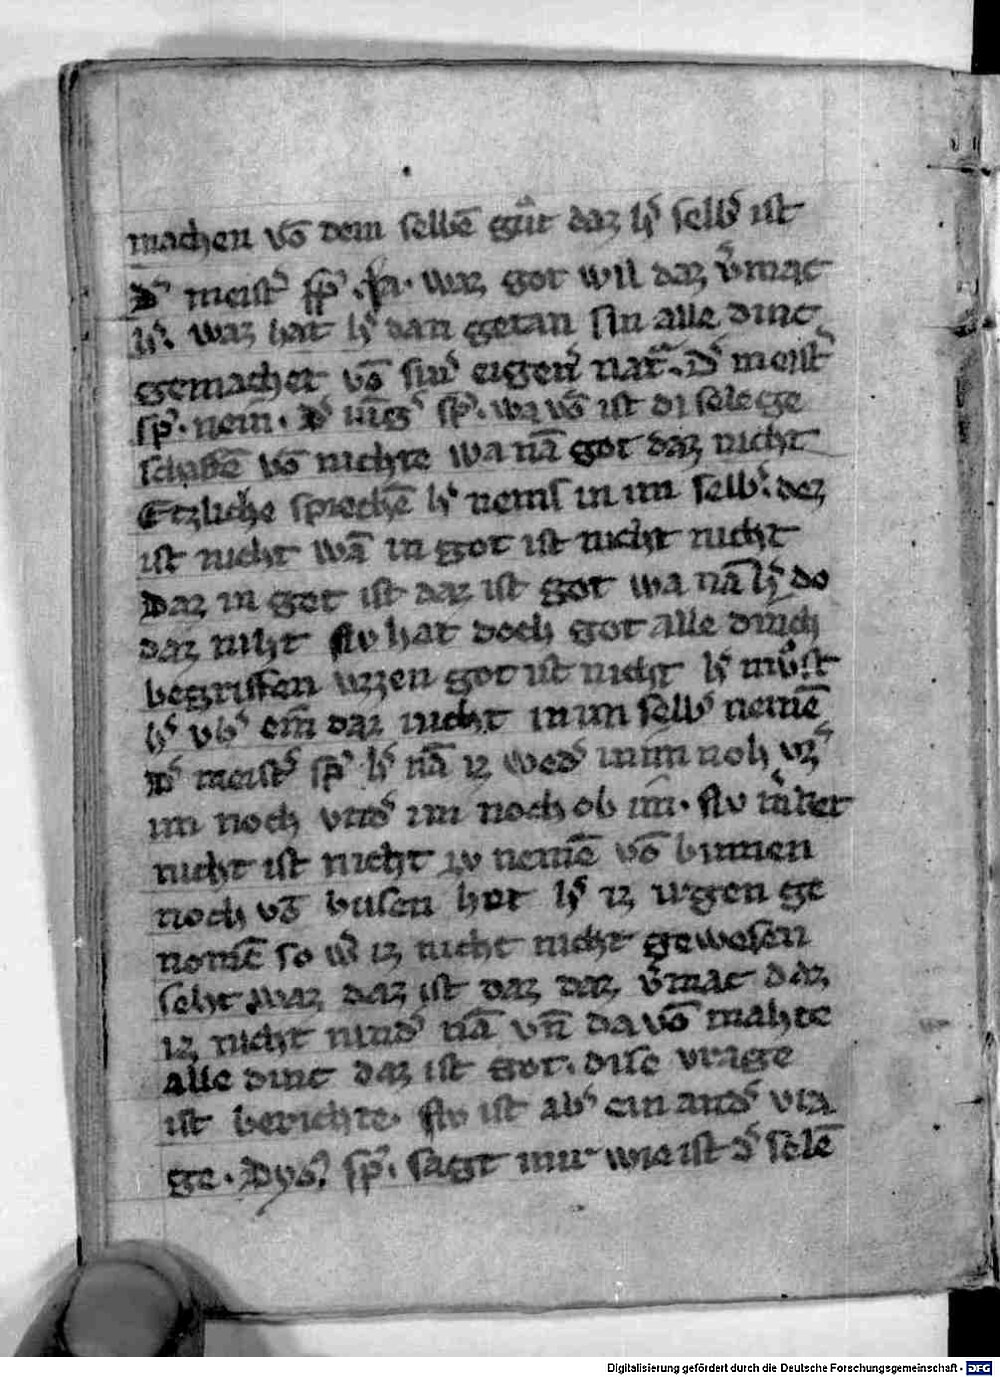 machen vō dem selbē gůt daz h͛ selb͛ ist
D͛ meist͛ sp͛ · Ja · waz got wil daz v͛mac
h͛ · waz hat h͛ dan getan sin alle dinc
gemachet vō sin͛ eigen͛ nat͛ · D͛ meist͛
sp͛ · nein · D͛ iūg͛ sp͛ · wa vō ist di sele ge
schafē vō nichte wa nā got daz nicht
Etzliche sprechē h͛ nems in im selb͛ · dez
ist nicht wā in got ist nicht nicht
Daz in got ist daz ist got wa nā h͛ do
daz niht Nv hat doch got alle dinch
begriffen vzzen got ist nicht h͛ mv̊st
h͛ vb͛ ein daz nicht in im selb͛ nemē
D͛ meist͛ sp͛ h͛ nā iz wed͛ in im noh vz͛
im noch vnd͛ im noch ob im · Nv m͛ket
nicht ist nicht zv nemē vō binnen
noch vō busen het h͛ iz irgen ge
nomē so w͛ iz nicht nicht gewesen
seht waz daz ist daz daz v͛mac daz
iz nicht nind͛ nā vn̄ da vō mahte
alle dinc daz ist got · dise vrage
ist berichte · Nv ist ab͛ ein and͛ vra
ge · Dyo͛ sp͛ · sagt mir wie ist d͛ selē
Digitalisierung gefördert durch die Deutsche Forschungsgemeinschaft - DFG